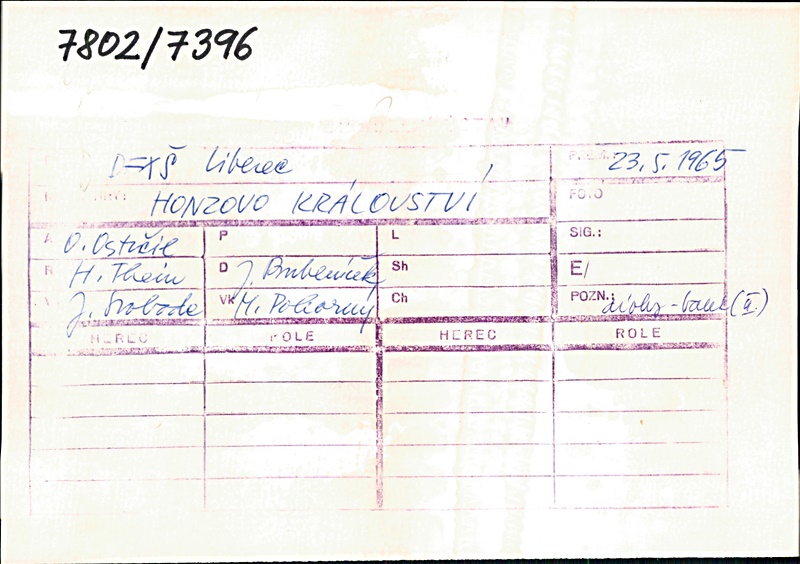 7802/7396
Liberec 23.5.1965
HONZOVO KRÁLOVSTVÍ FOTO
A O. Ostrčil P L SIG.:
R H. Thein D J. Sh E/
J. Svoboda VK M. Pokorný Ch POZN.: (II)
HEREC ROLE HEREC ROLE